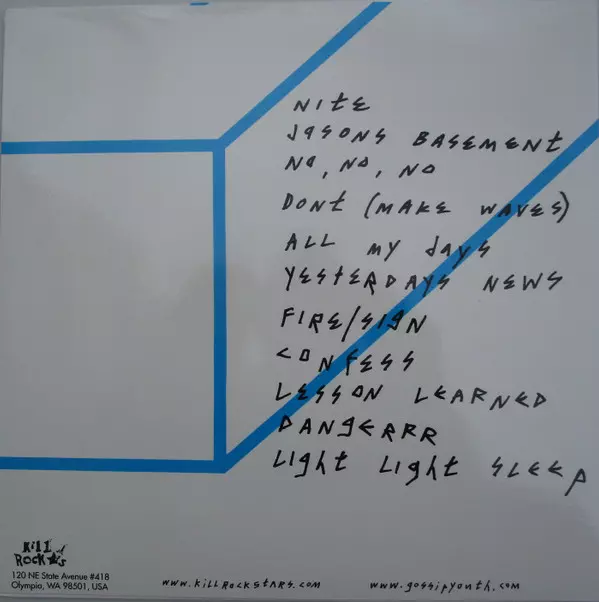 Nite
Jasons Basement
No, No, No
Dont (Make Waves)
All my days
Yesterdays News
Fire/Sign
Confess
Lesson Learned
Dangerrr
Light Light Sleep
Kill
Rock★s
120 NE State Avenue #418
Olympia, WA 98501, USA
www.killrockstars.com
www.gossipyouth.com